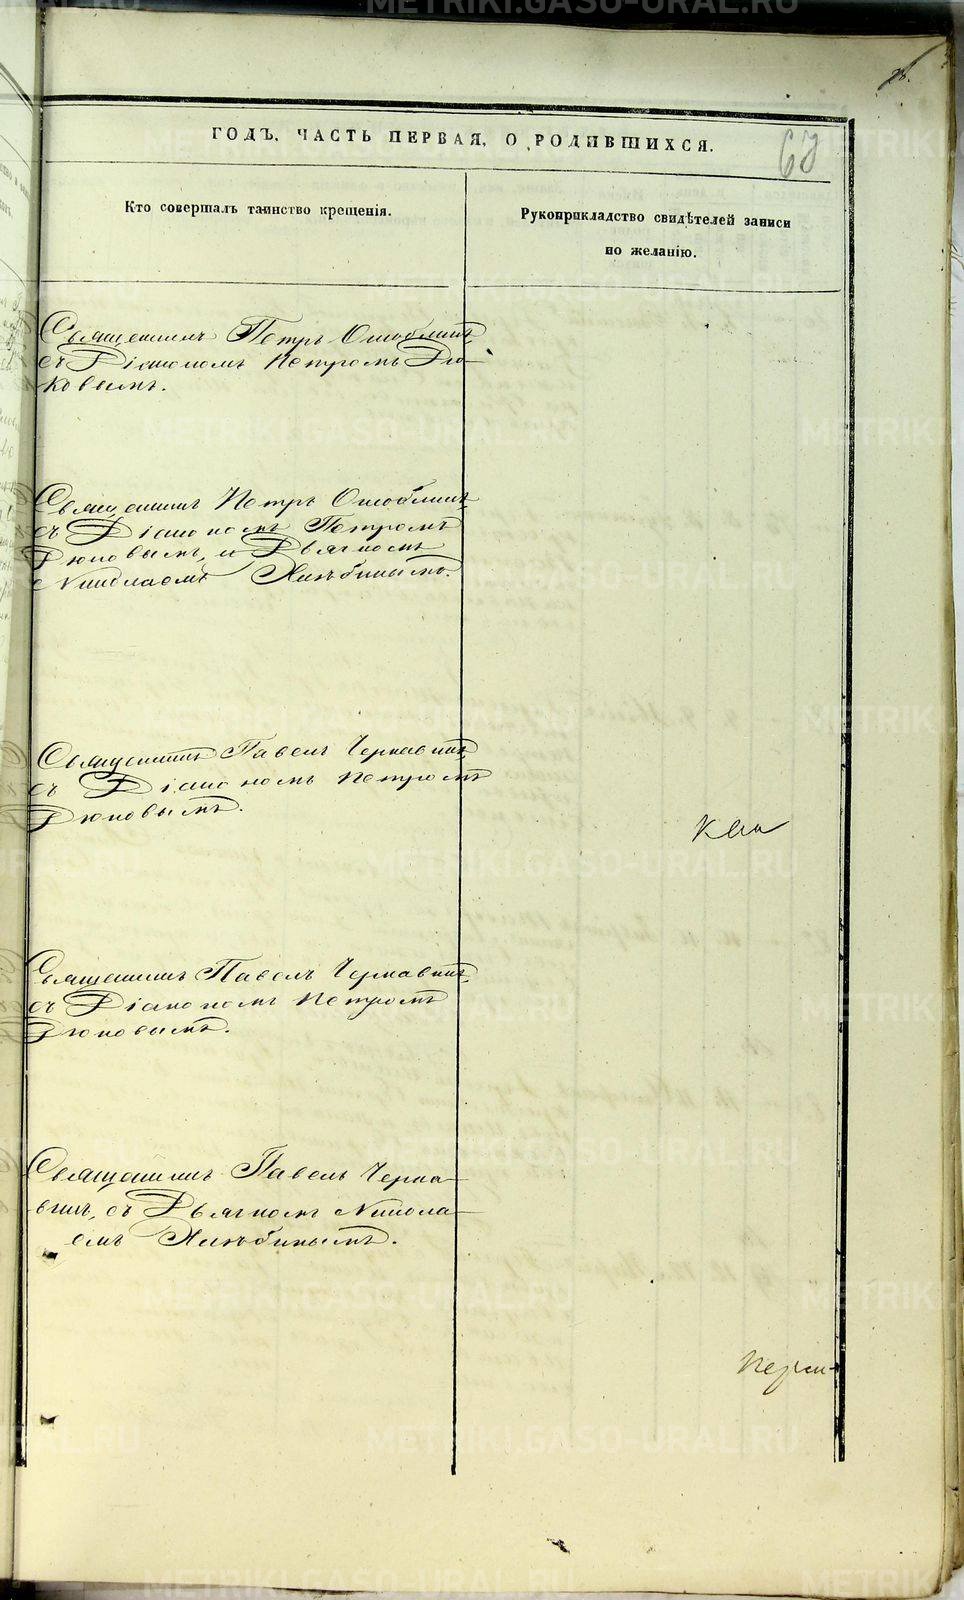 ГОДЪ, ЧАСТЬ ПЕРВАЯ, О РОДИВШИХСЯ.
Кто совершалъ таинство крещенія.
Рукоприкладство свидѣтелей записи
по желанію.
Священникъ Петръ
съ Діакономъ Петромъ Дю-
ковымъ.
Священникъ Петръ
съ Діакономъ Петромъ
Дюковымъ, и Дьячкомъ
Николаемъ Хлѣбинымъ.
Священникъ Павелъ Чернавинъ,
съ Діакономъ Петромъ
Дюковымъ.
Священникъ Павелъ Чернавинъ,
съ Діакономъ Петромъ
Дюковымъ.
Священникъ Павелъ Черна-
винъ, съ Дьячкомъ Никола-
емъ Хлѣбинымъ.
METRIKI.GASO-URAL.RU